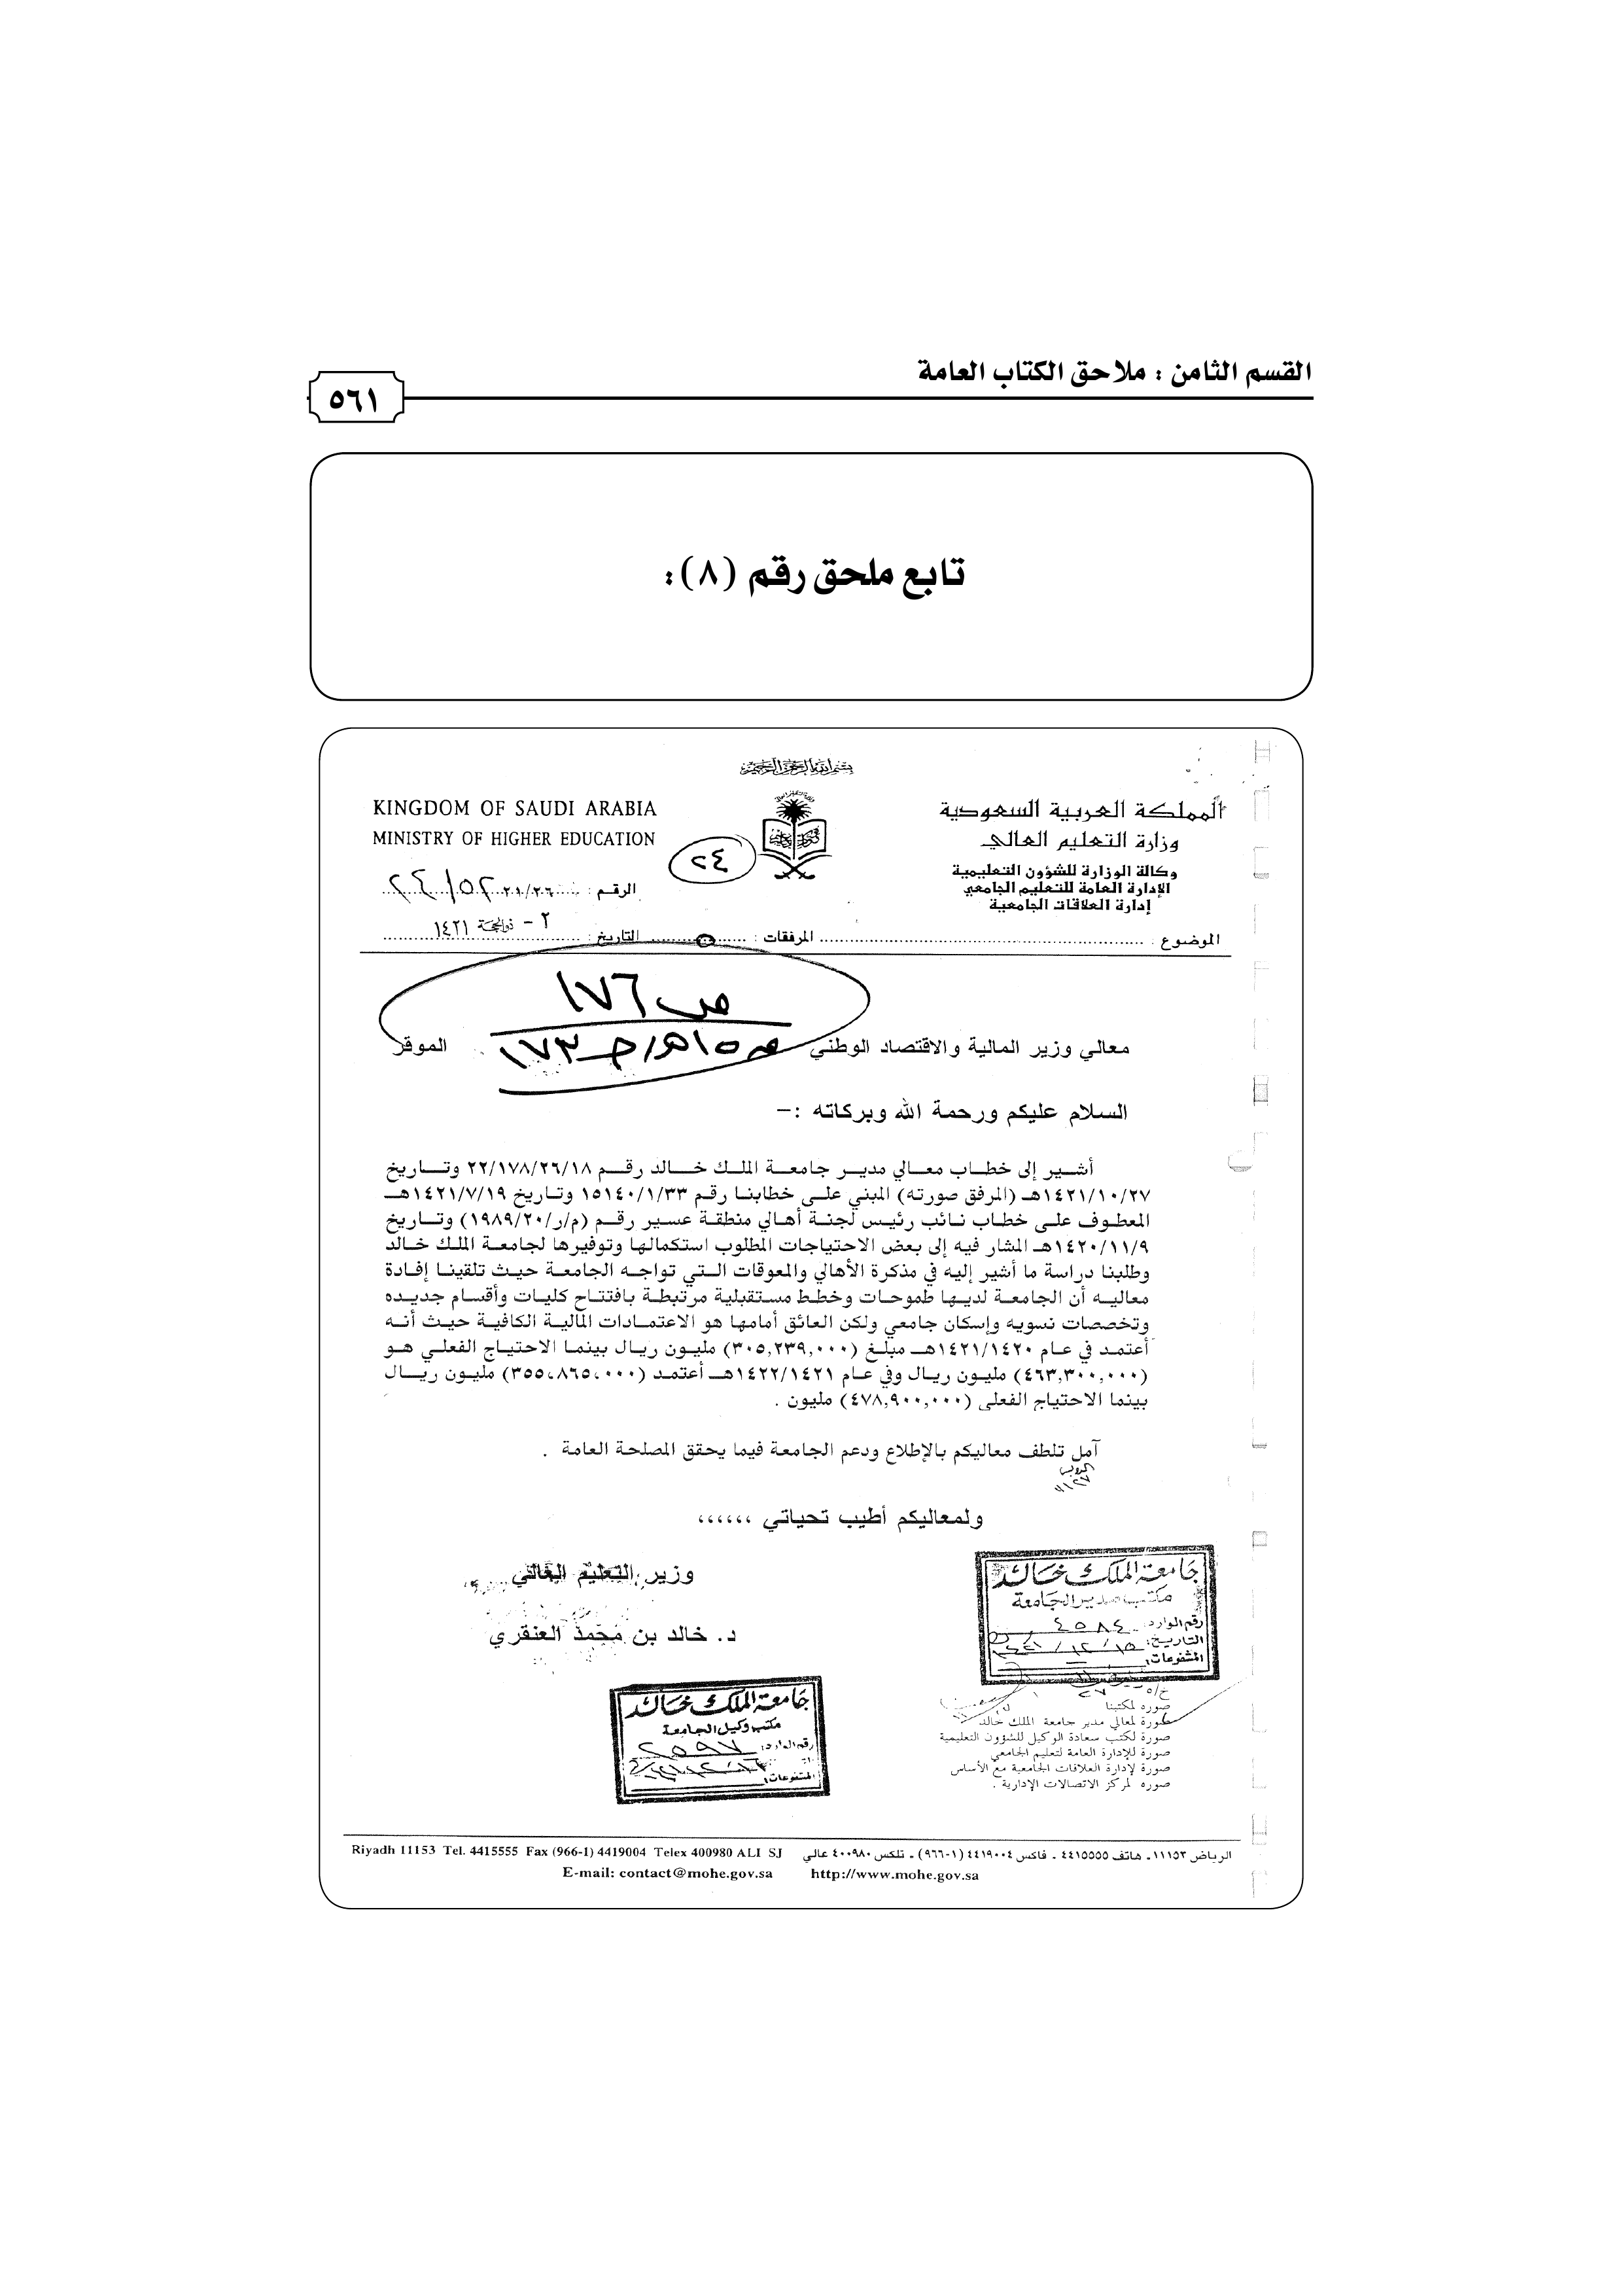 القسم الثامن : ملاحق الكتاب العامة
٥٦١
تابع ملحق رقم (٨):
بسم الله الرحمن الرحيم
KINGDOM OF SAUDI ARABIA
MINISTRY OF HIGHER EDUCATION
المملكة العربية السعودية
وزارة التعليم العالي
وكالة الوزارة للشؤون التعليمية
الإدارة العامة للتعليم الجامعي
إدارة العلاقات الجامعية
٢٤
الرقم :
الموضوع : المرفقات : التاريخ : ٢ - ذو الحجة ١٤٢١
ص ١٧٦
معالي وزير المالية والاقتصاد الوطني الموقر
السلام عليكم ورحمة الله وبركاته :-
أشير إلى خطاب معالي مدير جامعة الملك خالد رقم ٢٢/١٧٨/٢٦/١٨ وتاريخ
١٤٢١/١٠/٢٧هـ (المرفق صورته) المبني على خطابنا رقم ١٥١٤٠/١/٣٣ وتاريخ ١٤٢١/٧/١٩هـ
المعطوف على خطاب نائب رئيس لجنة أهالي منطقة عسير رقم (م/ر/١٩٨٩/٢٠) وتاريخ
١٤٢٠/١١/٩هـ المشار فيه إلى بعض الاحتياجات المطلوب استكمالها وتوفيرها لجامعة الملك خالد
وطلبنا دراسة ما أشير إليه في مذكرة الأهالي والمعوقات التي تواجه الجامعة حيث تلقينا إفادة
معاليه أن الجامعة لديها طموحات وخطط مستقبلية مرتبطة بافتتاح كليات وأقسام جديده
وتخصصات نسويه وإسكان جامعي ولكن العائق أمامها هو الاعتمادات المالية الكافية حيث أنه
أعتمد في عام ١٤٢١/١٤٢٠هـ مبلغ (٣٠٥,٢٣٩,٠٠٠) مليون ريال بينما الاحتياج الفعلي هو
(٤٦٣,٣٠٠,٠٠٠) مليون ريال وفي عام ١٤٢٢/١٤٢١هـ أعتمد (٣٥٥،٨٦٥،٠٠٠) مليون ريال
بينما الاحتياج الفعلي (٤٧٨,٩٠٠,٠٠٠) مليون .
آمل تلطف معاليكم بالإطلاع ودعم الجامعة فيما يحقق المصلحة العامة .
ولمعاليكم أطيب تحياتي ،،،،،،
وزير التعليم العالي
د. خالد بن محمد العنقري
جامعة الملك خالد
مكتب مدير الجامعة
رقم الوارد: ٤٥٨٤
التاريخ: ١٥/١٢/
المشفوعات:
جامعة الملك خالد
مكتب وكيل الجامعة
رقم الوارد: ٢٥٩٧
المشفوعات:
صوره لمكتبنا
صورة لمعالي مدير جامعة الملك خالد
صورة لمكتب سعادة الوكيل للشؤون التعليمية
صورة للإدارة العامة لتعليم الجامعي
صورة لإدارة العلاقات الجامعية مع الأساس
صوره لمركز الاتصالات الإدارية .
الرياض ١١١٥٣ - هاتف ٤٤١٥٥٥٥ - فاكس ٤٤١٩٠٠٤ (١-٩٦٦) - تلكس ٤٠٠٩٨٠ عالي
Riyadh 11153 Tel. 4415555 Fax (966-1) 4419004 Telex 400980 ALI SJ
E-mail: contact@mohe.gov.sa http://www.mohe.gov.sa